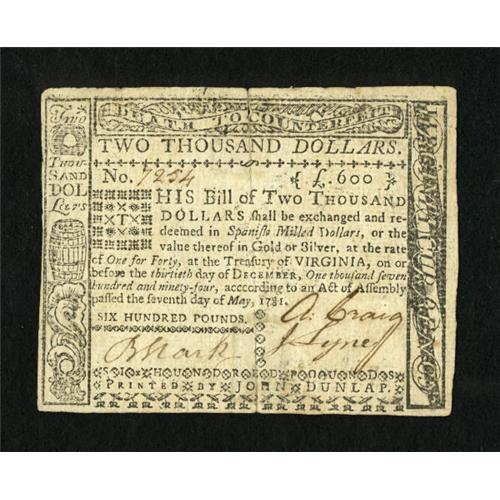 DEATH TO COUNTERFEIT
TWO THOUSAND DOLLARS.
No. 7254 £.600
THIS Bill of TWO THOUSAND
DOLLARS shall be exchanged and re-
deemed in Spanish Milled Dollars, or the
value thereof in Gold or Silver, at the rate
of One for Forty, at the Treasury of VIRGINIA, on or
before the thirtieth day of DECEMBER, One thousand seven
hundred and ninety-four, acccording to an Act of Assembly
passed the seventh day of May, 1781.
SIX HUNDRED POUNDS.
A. Craig
B Stark
J Lyne
SIX HUNDRED POUNDS
PRINTED BY JOHN DUNLAP.
Two
THOU-
SAND
DOL
Lars
VIRGINIA CURRENCY